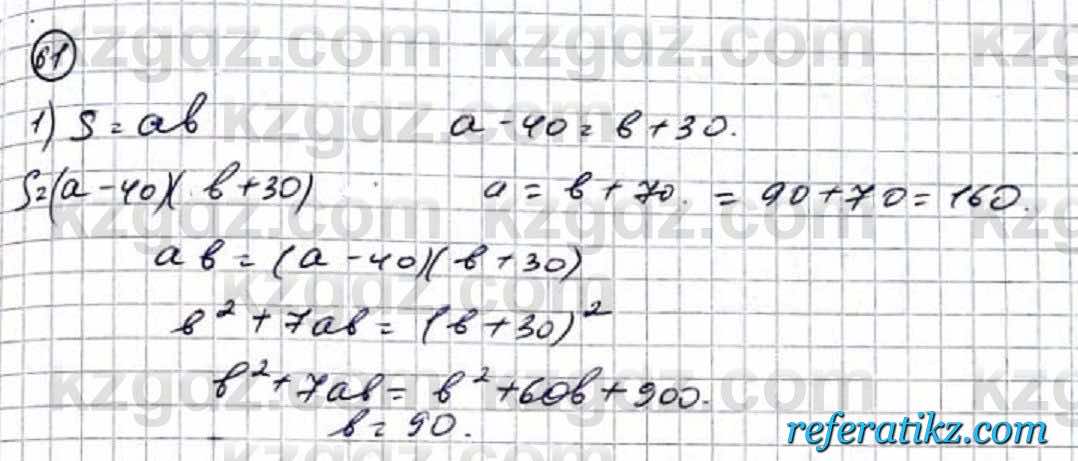 61
1) S = ab    a - 40 = b + 30.
S = (a - 40)( b + 30)    a = b + 70. = 90 + 70 = 160.
ab = (a - 40)(b + 30)
b² + 7ab = (b + 30)²
b² + 7ab = b² + 60b + 900.
b = 90.
referatikz.com
kzgdz.com